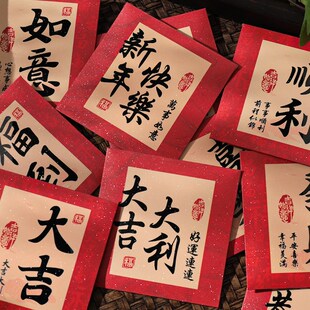 如意
心想事
新年
快樂
萬事如意
順利
事事順利
前程似錦
福到
大吉
大吉大
大吉
大利
好運連連
平安喜樂
幸福美滿